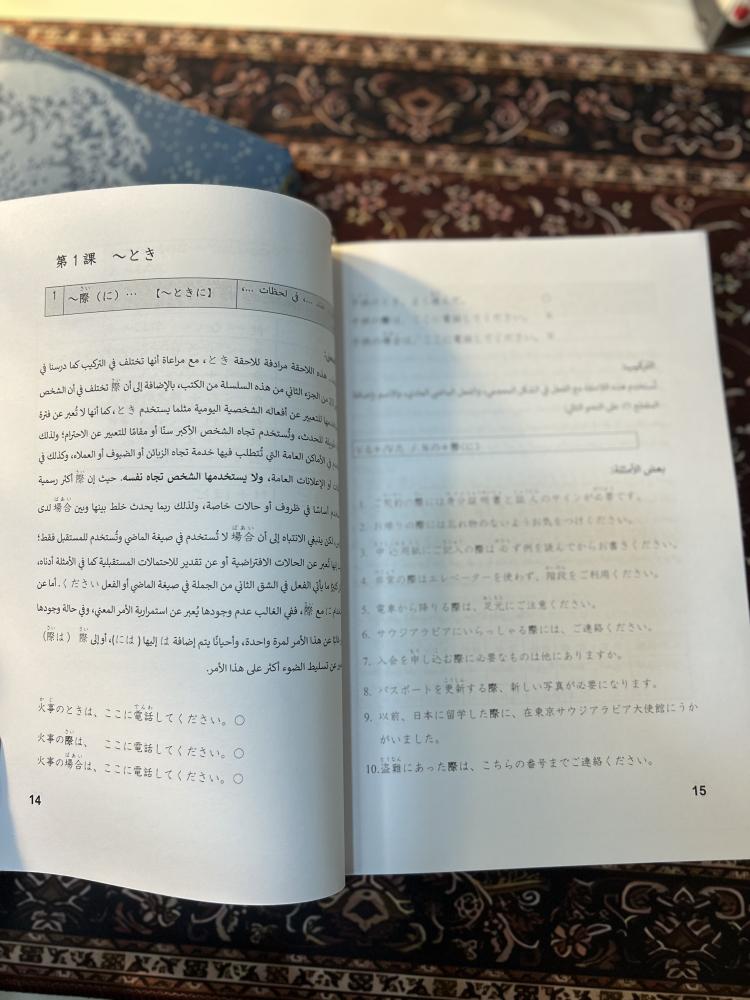 第1課 ～とき
1 ～際（に）… 【～ときに】 …، في لحظات …،
هذه اللاحقة مرادفة للاحقة とき، مع مراعاة أنها تختلف في التركيب كما درسنا في
من الجزء الثاني من هذه السلسلة من الكتب، بالإضافة إلى أن 際 تختلف في أن الشخص
للتعبير عن أفعاله الشخصية اليومية مثلما يستخدم とき، كما أنها لا تُعبر عن فترة
للحدث، وتُستخدم تجاه الشخص الأكبر سنًا أو مقامًا للتعبير عن الاحترام؛ ولذلك
في الأماكن العامة التي تُتطلب فيها خدمة تجاه الزبائن أو الضيوف أو العملاء، وكذلك في
أو الإعلانات العامة، ولا يستخدمها الشخص تجاه نفسه. حيث إن 際 أكثر رسمية
أساسًا في ظروف أو حالات خاصة، ولذلك ربما يحدث خلط بينها وبين 場合 لدى
ولكن ينبغي الانتباه إلى أن 場合 لا تُستخدم في صيغة الماضي وتُستخدم للمستقبل فقط؛
تُعبر عن الحالات الافتراضية أو عن تقدير للاحتمالات المستقبلية كما في الأمثلة أدناه،
ما يأتي الفعل في الشق الثاني من الجملة في صيغة الماضي أو الفعل ください. أما عن
に مع 際، ففي الغالب عدم وجودها يُعبر عن استمرارية الأمر المعني، وفي حالة وجودها
عن هذا الأمر لمرة واحدة، وأحيانًا يتم إضافة は إليها (には)، أو إلى 際 (際は)
عن تسليط الضوء أكثر على هذا الأمر.
火事のときは、ここに電話してください。○
火事の際は、 ここに電話してください。○
火事の場合は、ここに電話してください。○
14
التركيب:
بعض الأمثلة:
1. ご契約の際には身分証明書と証人のサインが必要です。
2. お帰りの際には忘れ物のないようお気をつけください。
3. 申込用紙にご記入の際は必ず例を読んでからお書きください。
4. 非常の際はエレベーターを使わず、階段をご利用ください。
5. 電車から降りる際は、足元にご注意ください。
6. サウジアラビアにいらっしゃる際には、ご連絡ください。
7. 入会を申し込む際に必要なものは他にありますか。
8. パスポートを更新する際、新しい写真が必要になります。
9. 以前、日本に留学した際に、在東京サウジアラビア大使館にうか
がいました。
10.盗難にあった際は、こちらの番号までご連絡ください。
15